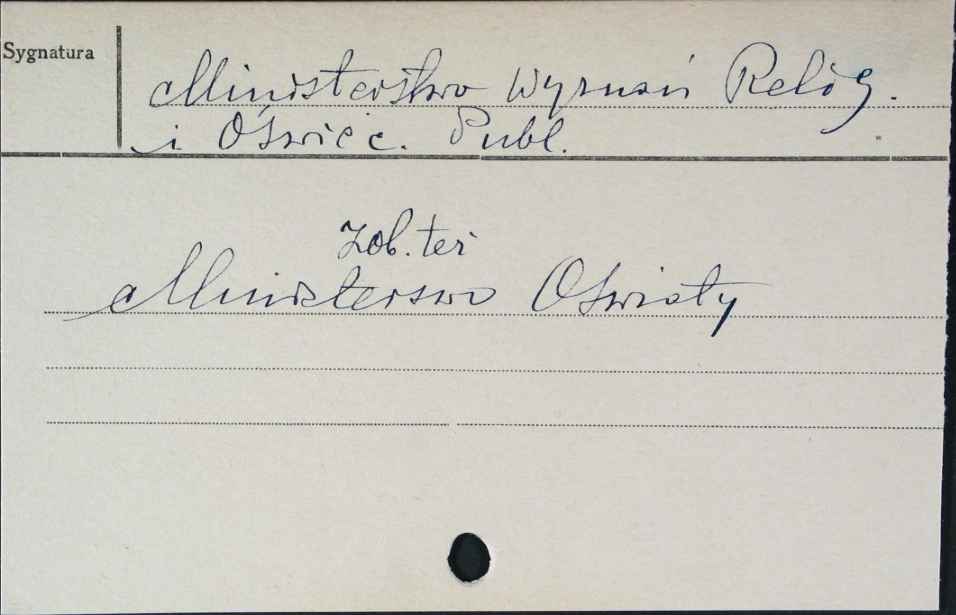 Sygnatura
Ministerstwo Wyznań Relig.
i Oświec. Publ.
zob. też
Ministerstwo Oświaty